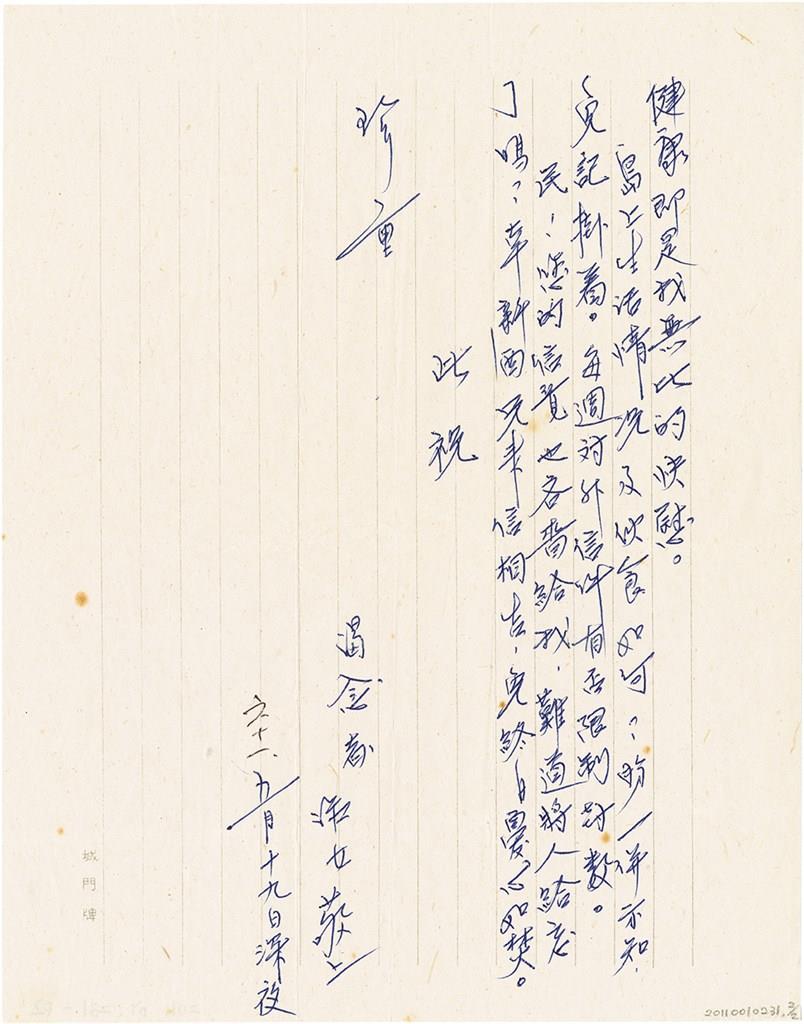 健康即是我無比的快慰。
島上生活情況及伙食如何？盼一併示知，
免記掛著。每週對外信件有否限制封數。
民：您的信竟也吝嗇給我，難道將人給忘
了嗎？幸新西兄來信相告，免終日憂心如焚。
此祝
珍重
渴念者
女敬上
六十一、五月十九日深夜
城門牌
20110010231, 2/2